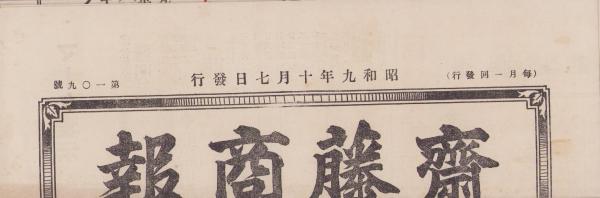 (毎月一回發行)
昭和九年十月七日發行
第一〇九號
齋藤商報